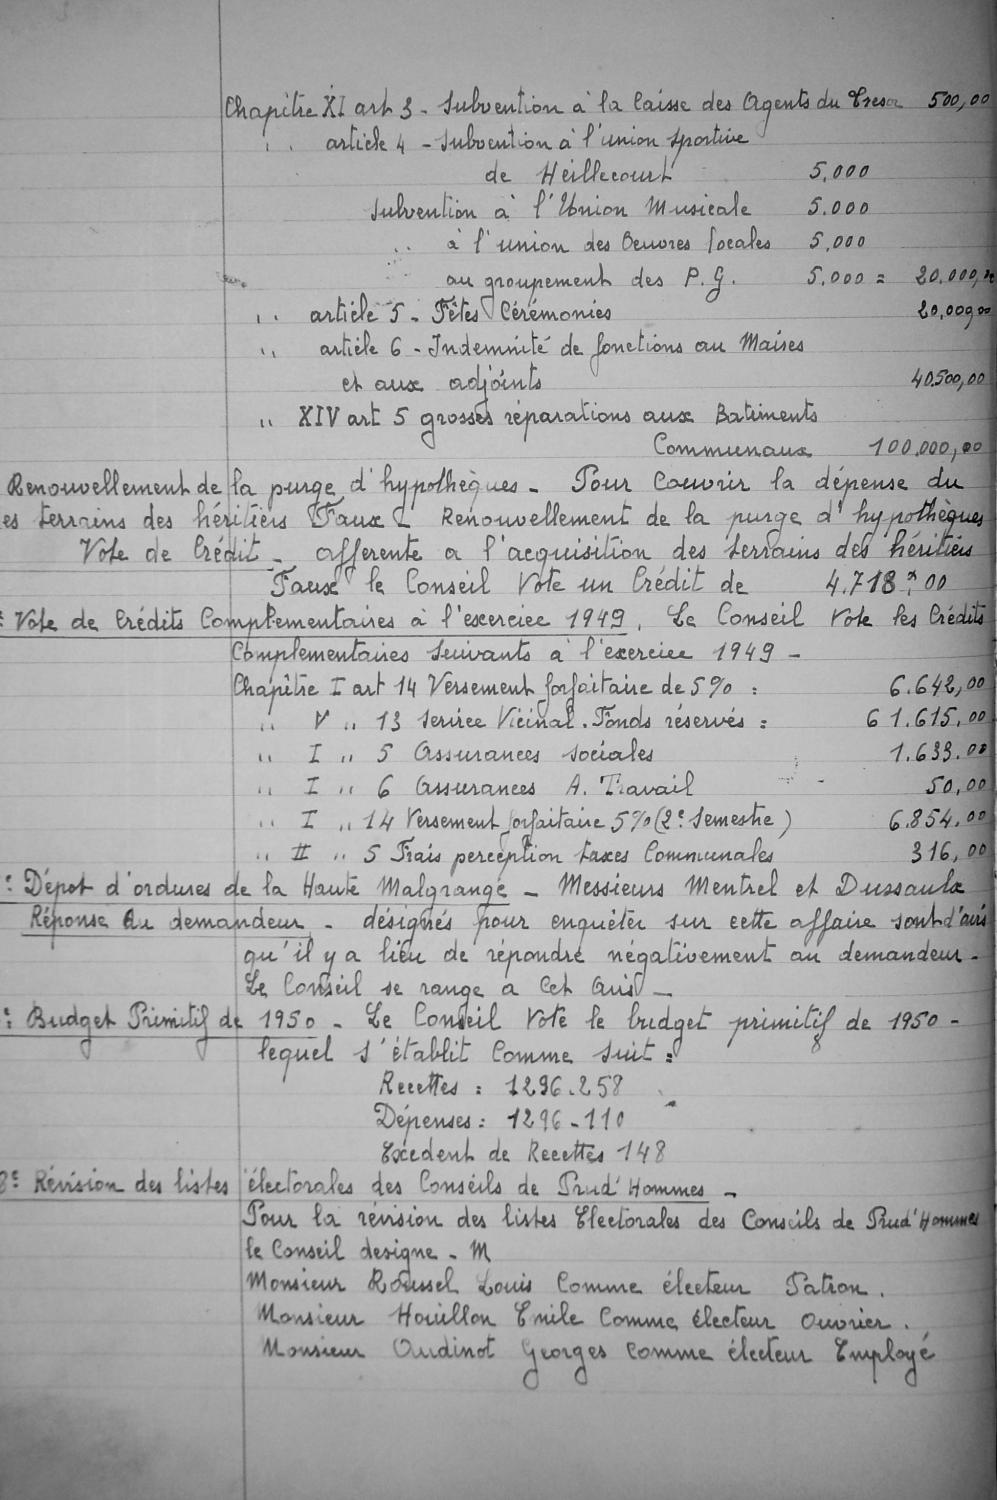 Chapitre XI art 3 - Subvention à la Caisse des Agents du Tresor 500,00
" " article 4 - Subvention à l'union Sportive
de Heillecourt 5.000
Subvention à l'Union Musicale 5.000
" à l'union des Oeuvres locales 5.000
au groupement des P.G. 5.000 = 20.000,00
" article 5 - Fêtes Cérémonies 20.000,00
" article 6 - Indemnité de fonctions au Maires
et aux adjoints 40.500,00
" XIV art 5 grosses réparations aux Batiments
Communaux 100.000,00
Renouvellement de la purge d'hypothèques - Pour Couvrir la dépense du
es terrains des héritiers Faux - Renouvellement de la purge d'hypothèques
Vote de Crédit - afferente a l'acquisition des terrains des héritiers
Faux le Conseil Vote un Crédit de 4.718,00
: Vote de Crédits Complementaires à l'exercice 1949. Le Conseil Vote les Crédits
Complementaires suivants à l'exercice 1949 -
Chapître I art 14 Versement forfaitaire de 5% : 6.642,00
" V " 13 Service Vicinal. Fonds réservés : 61.615,00
" I " 5 Assurances sociales 1.633.00
" I " 6 Assurances A. Travail 50,00
" I " 14 Versement forfaitaire 5% (2e Semestre) 6.854,00
" II " 5 Frais perception taxes Communales 316,00
: Dépot d'ordures de la Haute Malgrange - Messieurs Mentrel et Dussaulx
Réponse au demandeur - désignés pour enquêter sur cette affaire sont d'avis
qu'il y a lieu de répondre négativement au demandeur -
Le Conseil se range a cet avis -
: Budget Primitif de 1950 - Le Conseil Vote le budget primitif de 1950 -
lequel s'établit Comme suit :
Recettes : 1296.258
Dépenses : 1296-110
Excedent de Recettes 148
8e Révision des listes électorales des Conseils de Prud'Hommes -
Pour la révision des listes Electorales des Conseils de Prud'Hommes
le Conseil designe - M
Monsieur Roussel Louis Comme électeur Patron.
Monsieur Houillon Emile Comme électeur Ouvrier.
Monsieur Oudinot Georges Comme électeur Employé